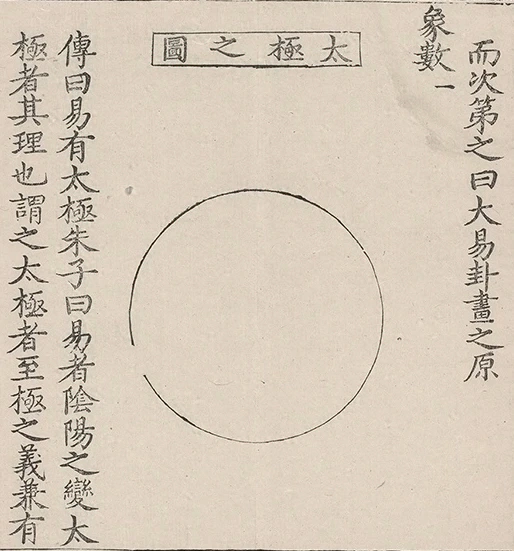 而次第之曰大易卦畫之原
象數一
太極之圖
傳曰易有太極朱子曰易者陰陽之變太
極者其理也謂之太極者至極之義兼有